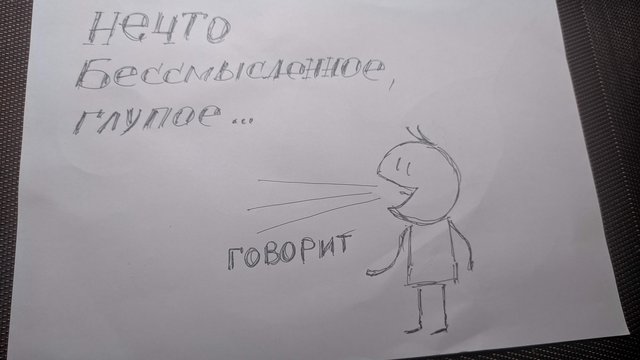 Нечто
Бессмысленное,
глупое...
ГОВОРИТ